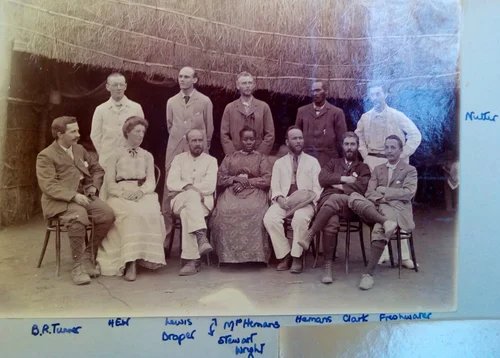 Nutter
B.R. Turner HEW Lewis Mrs Hemans Hemans Clark Freshwater
Draper Stewart
Wright